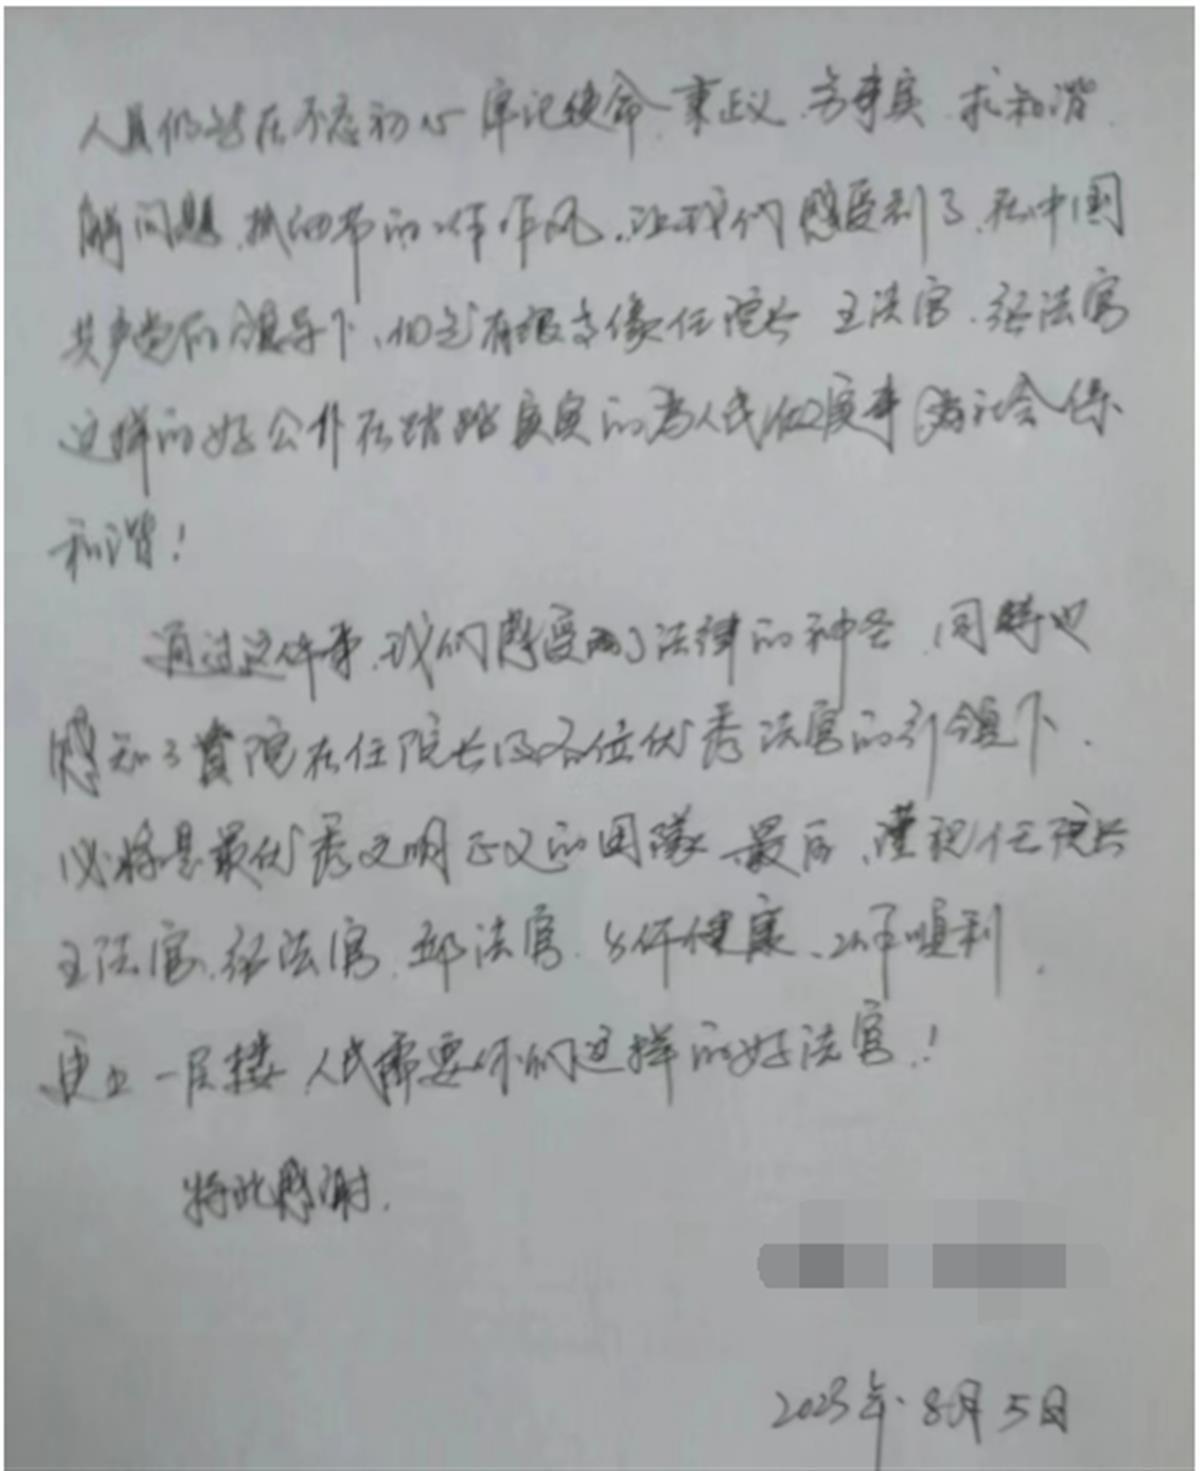 人员仍然在不忘初心 牢记使命、秉正义、务事实、求和谐、
解问题、抓细节的工作作风,让我们感受到了,在中国
共产党的领导下,仍然有很多像任院长 王法官、张法官
这样的好公仆在踏踏实实的为人民做实事 为社会保
和谐!
通过这件事,我们感受到了法律的神圣,同时也
感知了贵院在任院长及各位优秀法官的引领下、
必将是最优秀文明正义的团队、最后、谨祝任院长
王法官、张法官、邱法官、身体健康、工作顺利、
更上一层楼、人民需要你们这样的好法官!
特此感谢.
2023年8月5日